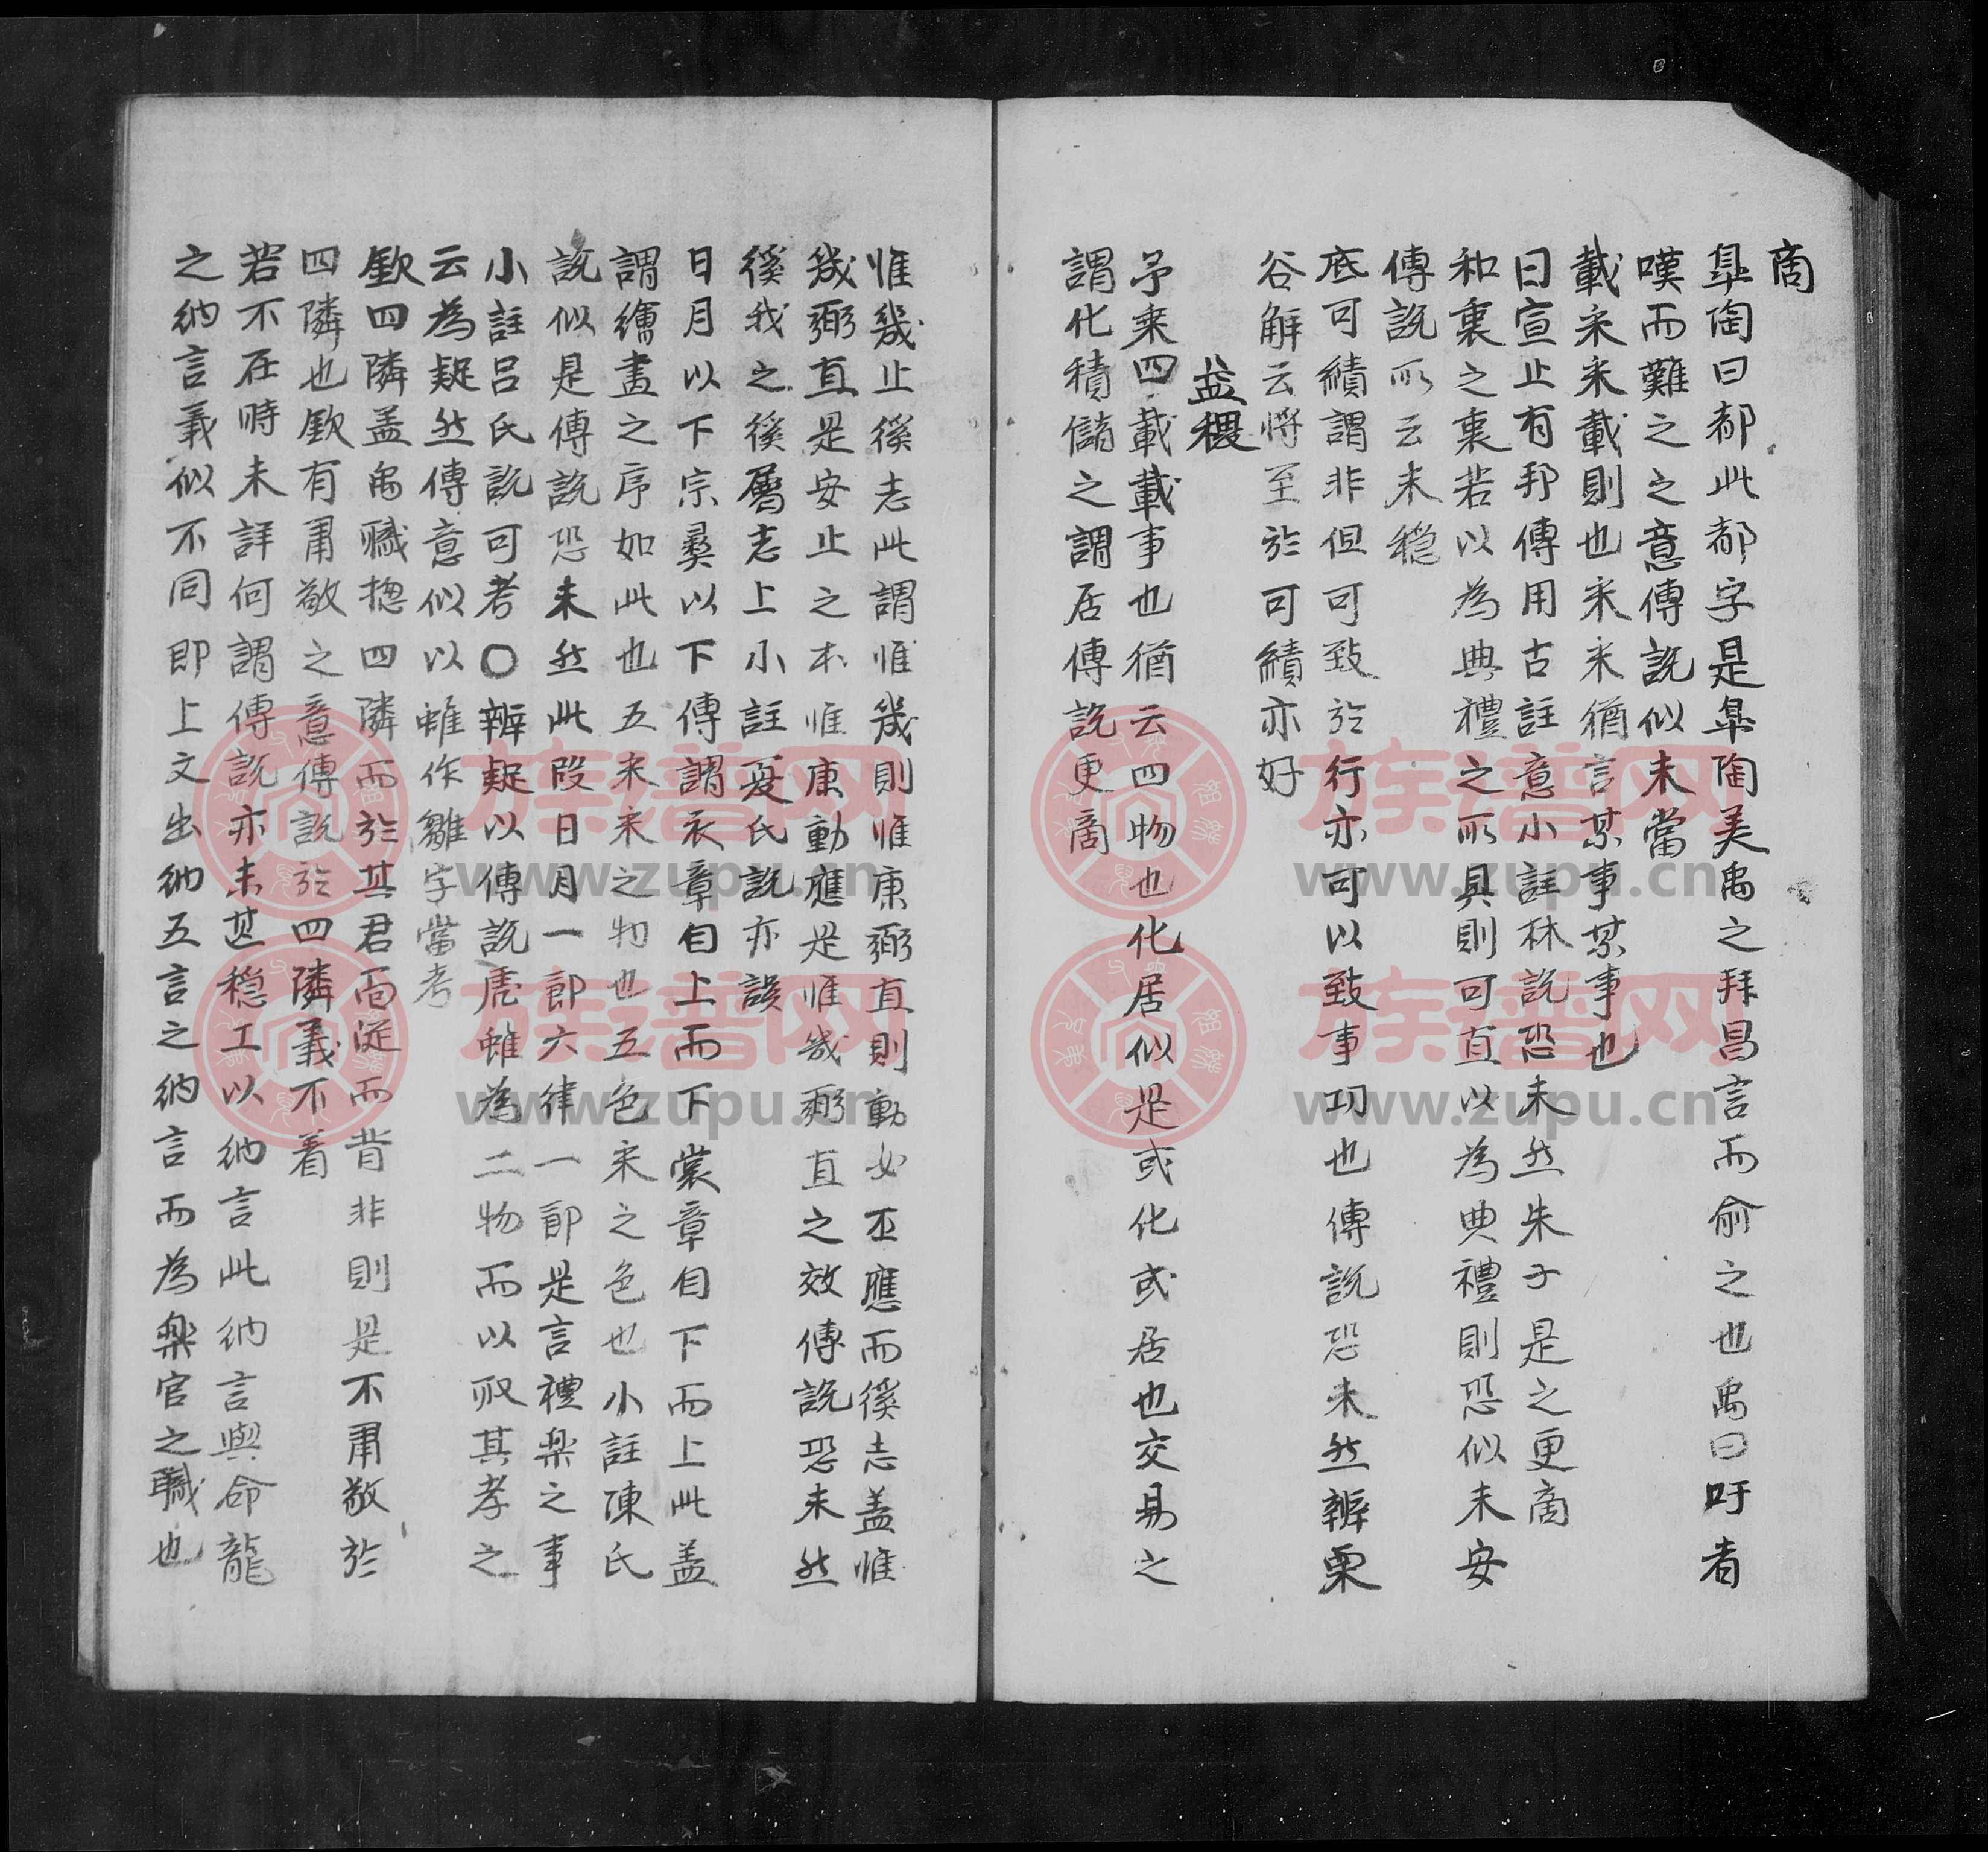 商
皐陶曰都此都字是皐陶美禹之拜昌言而俞之也禹曰吁者
嘆而難之之意傳說似未當
載采采載則也采采猶言某事某事也
日宣止有邦傳用古註意小註林說恐未然朱子是之更商
和衷之衷若以為典禮之所具則可直以為典禮則恐似未安
傳說所云未穩
底可績謂非但可致於行亦可以致事功也傳說恐未然辨栗
谷解云將至於可績亦好
益稷
予乘四載載事也猶云四物也化居似是或化或居也交易之
謂化積儲之謂居傳說更商
惟幾止徯志此謂惟幾則惟康弼直則動必丕應而徯志盖惟
幾弼直是安止之本惟康動應是惟幾弼直之效傳說恐未然
徯我之徯屬志上小註夏氏說亦誤
日月以下宗彜以下傳謂衣章自上而下裳章自下而上此盖
謂繡畫之序如此也五采采之物也五色采之色也小註陳氏
說似是傳說恐未然此段日月一節六律一節是言禮樂之事
小註呂氏說可考〇辨疑以傳說虎蜼為二物而以取其孝之
云為疑然傳意似以蜼作雛字當考
欽四隣盖禹職摠四隣而於其君面從而背非則是不肅敬於
四隣也欽有肅敬之意傳說於四隣義不着
若不在時未詳何謂傳說亦未甚穩工以納言此納言與命龍
之納言義似不同即上文出納五言之納言而為樂官之職也
族谱网
www.zupu.cn
族谱网
www.zupu.cn
族谱网
www.zupu.cn
族谱网
www.zupu.cn